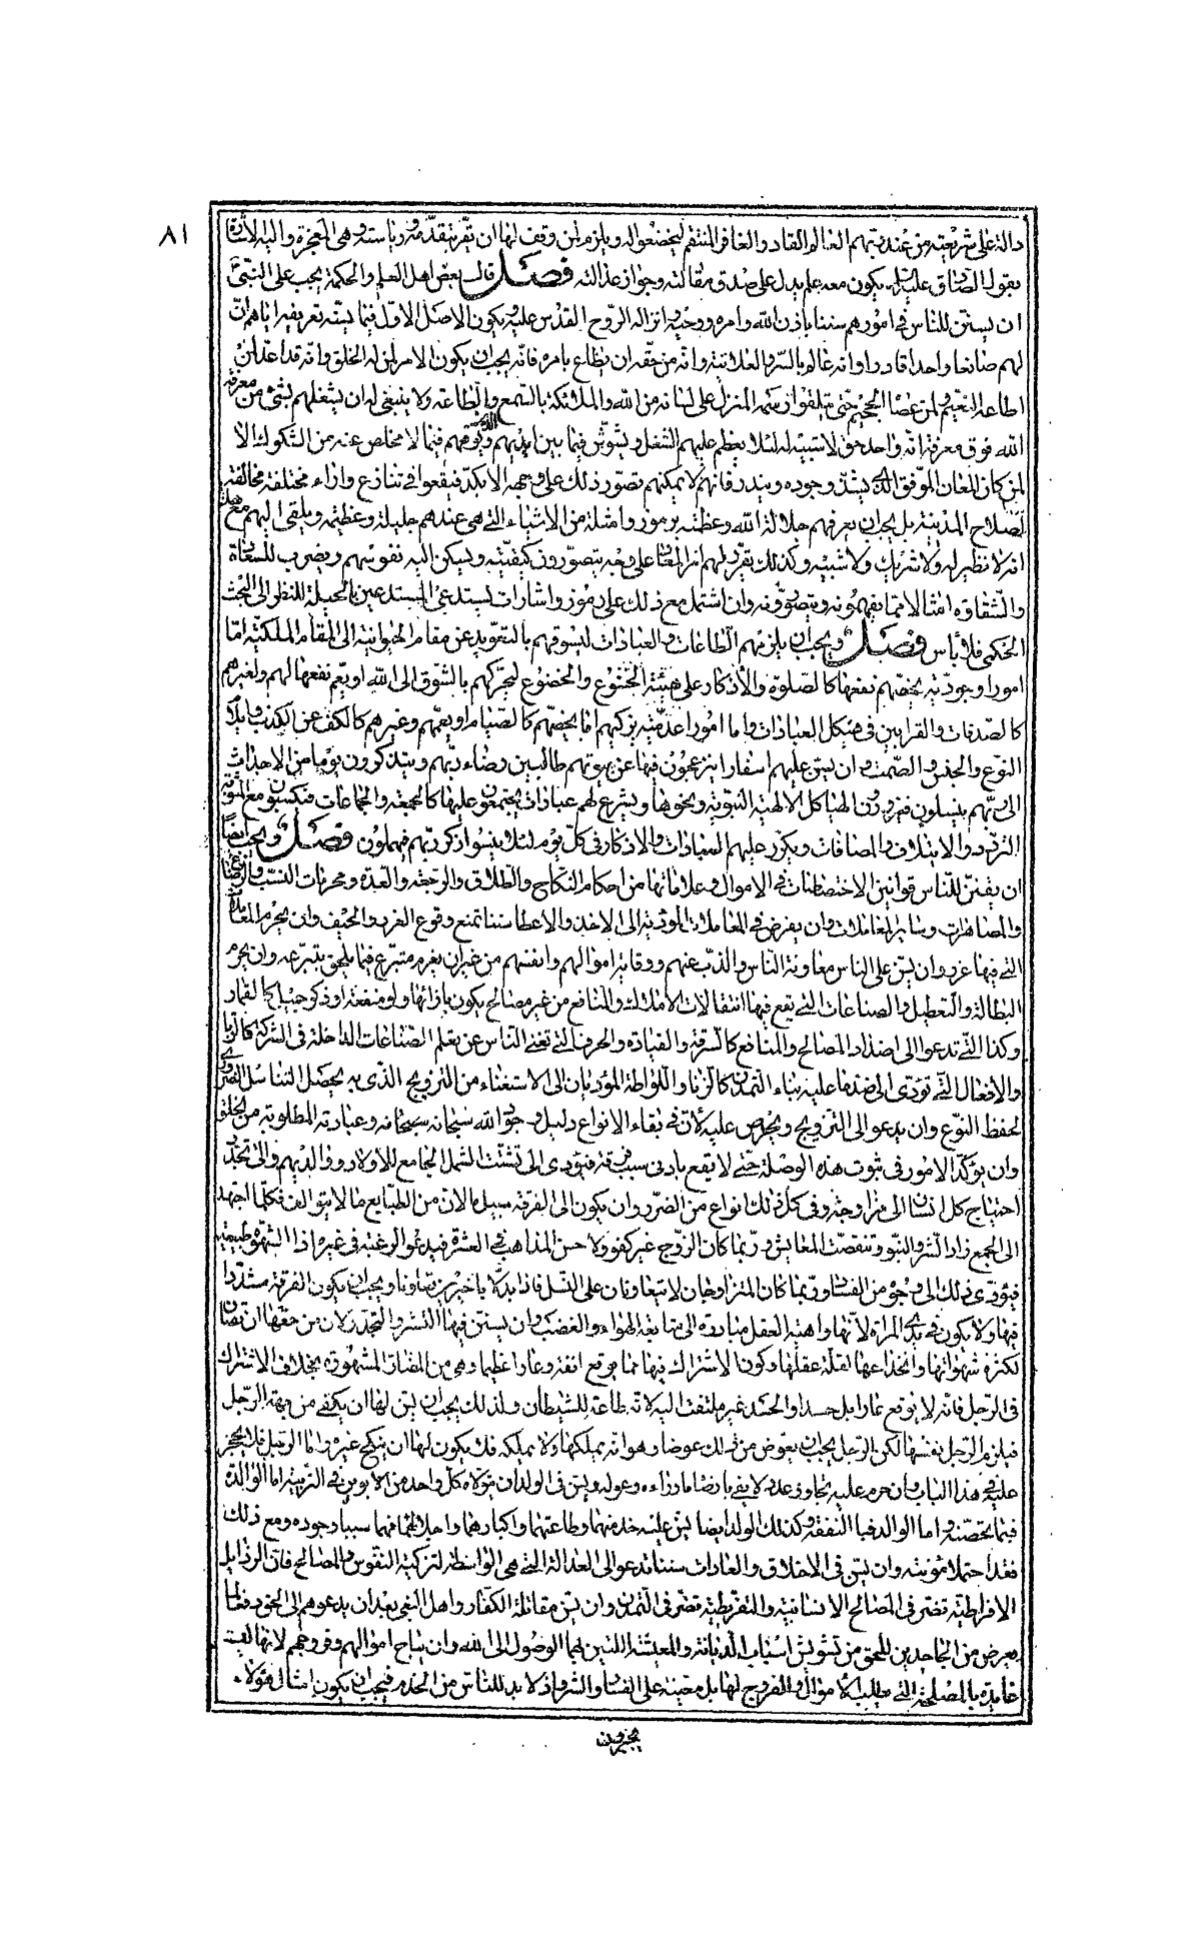 ٨١
دالة على شريعته من عند ربهم العالم القادر الغافر المنتقم ليخضعوا له ويلزم لمن وقف لها ان يقر بتقدمه ورياسته وهي المعجزة واليه الاشارة
بقول الصادق عليه السلام يكون معه علم يدل على صدق مقالته وجواز عدالته فصل قال بعض اهل العلم والحكمة يجب على النبي
ان يسنن للناس في امورهم سننا باذن الله وامره ووحيه وانزاله الروح القدس عليه ويكون الاصل الاول فيما يسنه تعريفه اياهم ان
لهم صانعا واحدا قادرا وانه عالم بالسر والعلانية وانه من حقه ان يطاع بامره فانه يجب ان يكون الامر لمن له الخلق وانه قد اعد لمن
اطاعه النعيم ولمن عصاه الجحيم حتى يتلقوا رسمه المنزل على لسانه من الله والملائكة بالسمع والطاعة ولا ينبغي له ان يشغلهم بشئ من معرفة
الله فوق معرفة انه واحد حق لا شبيه له لئلا يعظم عليهم الشغل ويشوش فيما بين ايديهم ويوقعهم فيما لا مخلص عنه من الشكوك الا
لمن كان المعان الموفق الذي يشذ وجوده ويندر فانهم لا يمكنهم تصور ذلك على وجهه الا بكد فيقعوا في تنازع واراء مختلفة مخالفة
لصلاح المدينة بل يجب ان يعرفهم جلالة الله وعظمته برموز وامثلة من الاشياء التي هي عندهم جليلة وعظيمة ويلقى اليهم مع هذا
انه لا نظير له ولا شريك ولا شبيه وكذلك يقرر لهم امر المعاد على وجه يتصورون كيفيته ويسكن اليه نفوسهم ويضرب للسعادة
والشقاوة امثالا مما يفهمونه ويتصورونه وان اشتمل مع ذلك على رموز واشارات يستدعي المستدعين بالجبلة للنظر الى البحث
الحكمي فلا بأس فصل ويجب ان يلزمهم الطاعات والعبادات ليسوقهم بالتعويد عن مقام الحيوانية الى المقام الملكية اما
امورا وجودية يخصهم نفعها كالصلوة والاذكار على هيئة الخشوع والخضوع لتحركهم بالشوق الى الله او يعم نفعها لهم ولغيرهم
كالصدقات والقرابين في هيكل العبادات واما امورا عدمية يزكيهم اما يخصهم كالصيام او يعمهم وغيرهم كالكف عن الكذب وايلام
النوع والجنس والصمت وان يسن عليهم اسفارا ينزعجون فيها عن بيوتهم طالبين رضاء ربهم ويتذكرون يوما من الاجداث
الى ربهم ينسلون فيزورون الهياكل الالهية النبوية ونحوها ويشرع لهم عبادات يجتمعون عليها كالجمعة والجماعات فيكسبون مع المثوبة
التودد والايتلاف والمصافات ويكرر عليهم العبادات والاذكار في كل يوم لئلا ينسوا ذكر ربهم فيهملون فصل ويجب ايضا
ان يقنن للناس قوانين الاختصاصات في الاموال وعلاماتها من احكام النكاح والطلاق والرجعة والعدة ومحرمات النسب والرضاع
والمصاهرات وساير المعاملات وان يفرض في المعاملات المؤدية الى الاخذ والاعطاء سننا تمنع وقوع الغرر والحيف وان يحرم المعاملات
التي فيها غرر وان يسن على الناس معاونة الناس والذب عنهم ووقاية اموالهم وانفسهم من غير ان يغرم متبرع فيما يلحق بتبرعه وان يحرم
البطالة والتعطيل والصناعات التي يقع فيها انتقالات الاملاك والمنافع من غير مصالح يكون بازائها ولو منفعة او ذكر جميل كالقمار
وكذا التي تدعوا الى اضداد المصالح والمنافع كالسرقة والقيادة والحرف التي تغني الناس عن تعلم الصناعات الداخلة في الشركة كالربا
والافعال التي تؤدى الى ضد ما عليه بناء التمدن كالزنا واللواطة المؤديان الى الاستغناء من التزويج الذي به يحصل التناسل الضروري
لحفظ النوع وان يدعو الى التزويج ويحرص عليه لان في بقاء الانواع دليل وجود الله سبحانه وعبادته المطلوبة من الخلق
وان يؤكد الامور في ثبوت هذه الوصلة حتى لا يقع بادنى سبب فرقة فيؤدى الى تشتت الشمل الجامع للاولاد ووالديهم والى تجدد
احتياج كل انسان الى مزاوجة وفي كل ذلك انواع من الضرر وان يكون الى الفرقة سبيل ما لان من الطبايع ما لا يتوالف فكلما اجتهد
الى الجمع زاد الشر والنبو وتنقصت المعايش وربما كان الزوج غير كفو ولا حسن المذاهب في العشرة فيدعوا الرغبة في غيره اذا الشهوة طبيعية
فيؤدى ذلك الى وجوه من الفساد وربما كان المتزاوجان لا يتعاونان على النسل فاذا بدلا باخرين تعاونا ويجب ان يكون الفرقة مشددا
فيها ولا يكون في يدي المراة لانها واهية العقل مبادرة الى متابعة الهواء والغضب وان يسنن فيها التستر والتخدر لان من حقها ان تصان
لكثرة شهواتها وانخداعها لقلة عقلها وكون الاشتراك فيها مما يوقع انفة وعارا عظيما وهي من المضار المشهورة بخلاف الاشتراك
في الرجل فانه لا يوقع عارا بل حسدا والحسد غير ملتفت اليه لانه طاعة للشيطان ولذلك يجب ان يسن لها ان يكفى من جهة الرجل
فيلزم الرجل نفقتها لكن الرجل يجب ان يعوض من ذلك عوضا وهو انه يملكها ولا يملكه فلا يكون لها ان ينكح غيره واما الرجل فلا يحجر
عليه في هذا الباب وان حرم عليه تجاوز عدد لا يفي بارضاء ما وراءه وعوله ويسن في الولد ان يتولاه كل واحد من الابوين في التربية اما الوالدة
فيما يخصها واما الوالد فبالنفقة وكذلك الولد ايضا يسن عليه خدمتهما وطاعتهما واكبارهما واجلالهما فهما سببا وجوده ومع ذلك
فقد احتملا مؤنته وان يسن في الاخلاق والعادات سننا تدعو الى العدالة التي هي الواسطة لتزكية النفوس والمصالح فان الرذايل
الافراطية تضر في المصالح الانسانية والتفريطية تضر في التمدن وان يسن مقاتلة الكفار واهل البغي بعد ان يدعوهم الى الحق دفعا لما
يعرض من الجاحدين للحق من تشويش اسباب الديانة والمعيشة اللتين لهما الوصول الى الله وان يباح اموالهم وفروجهم لانها ليست
عايدة بالمصلحة التي يطلب الاموال والفروج لها بل معينة على الفساد والشر واذ لا بد للناس من الخدم فيجب ان يكون امثال هؤلاء
يجبرون